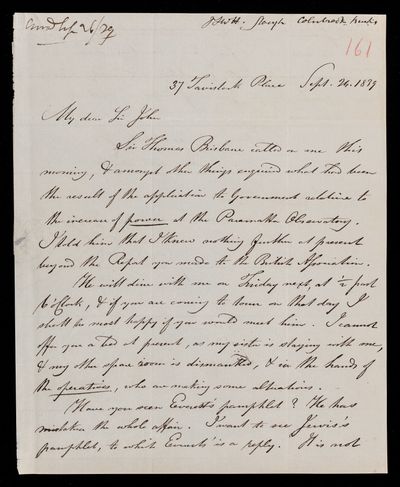 JFWH. Slough Colnbrook
161
37 Tavistock Place Sept. 24. 1839
My dear Sir John
Sir Thomas Brisbane called on me this
morning, & amongst other things enquired what had been
the result of the application to Government relative to
the increase of power at the Paramatta Observatory.
I told him that I knew nothing further at present
beyond the Report you made to the British Association.
He will dine with me on Friday next, at ½ past
6 o'Clock, & if you are coming to town on that day I
shall be most happy if you would meet him. I cannot
offer you a bed at present, as my sister is staying with me,
& my other spare room is dismantled, & in the hands of
the operatives, who are making some alterations.
Have you seen Everest's pamphlet? He has
mistaken the whole affair. I want to see Jervis's
pamphlet, to which Everest's is a reply. It is not